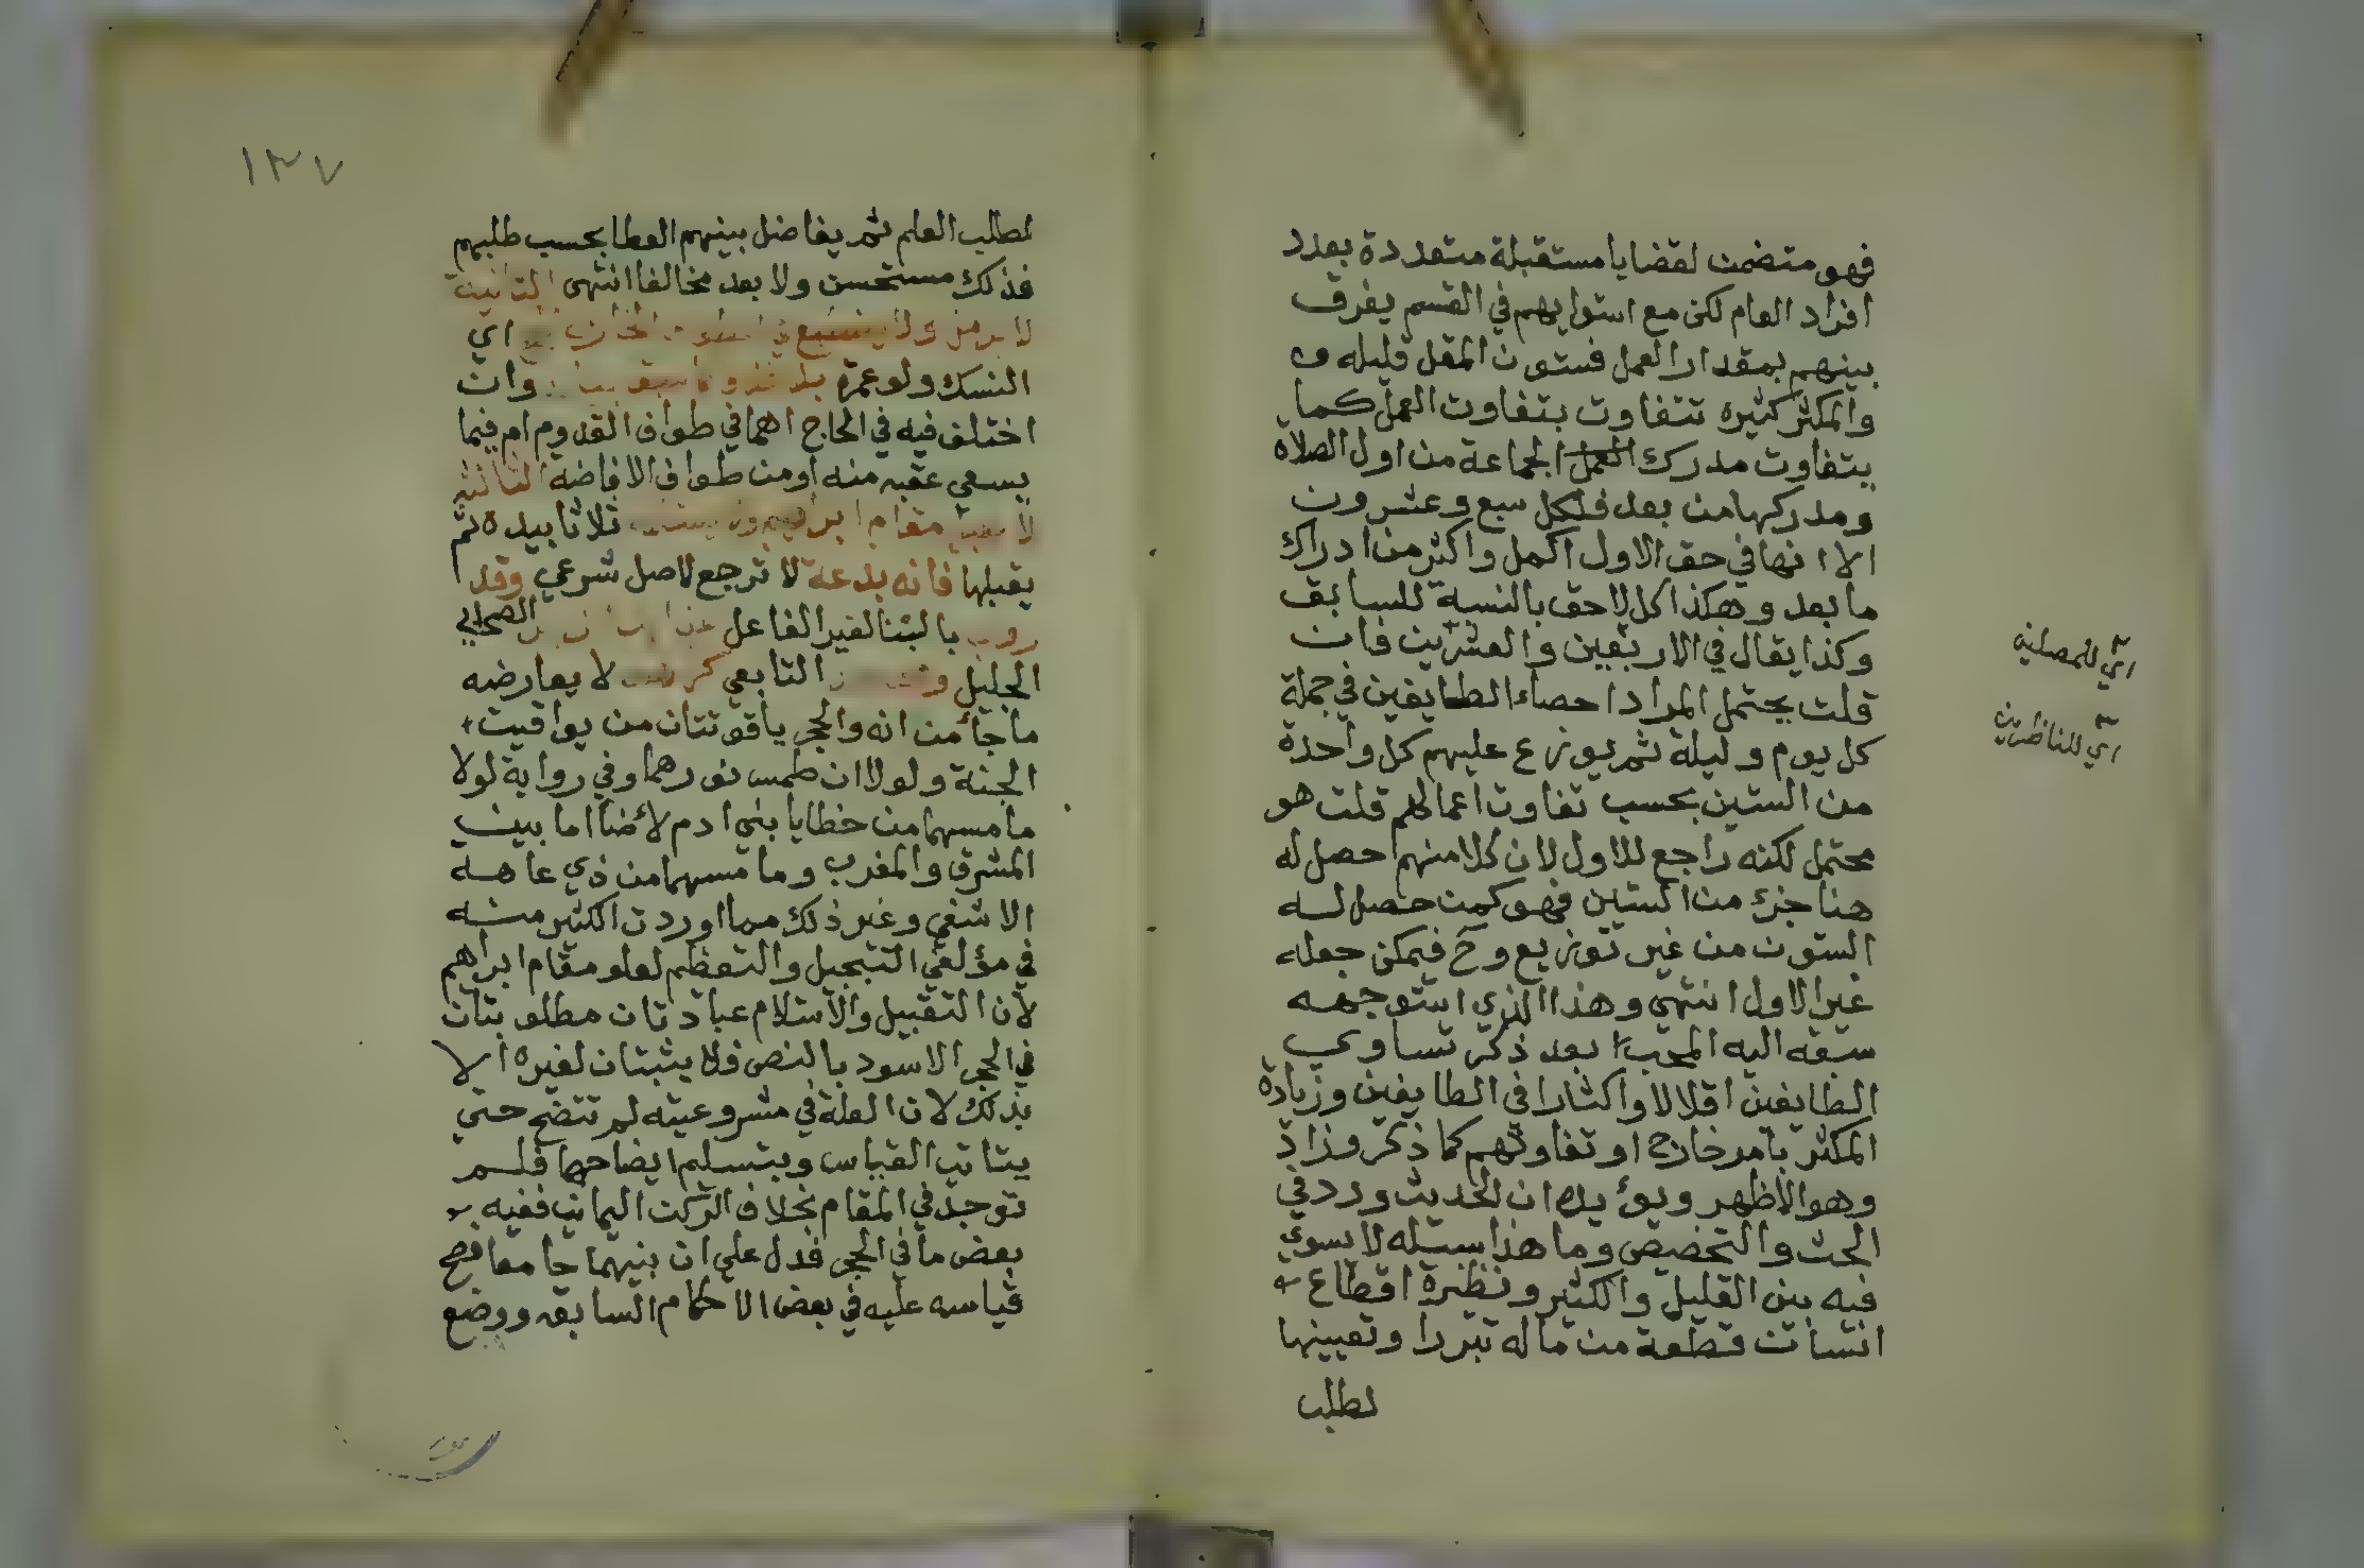 فهو متضمن لقضايا مستقبلة متعددة بعدد
افراد العام لكن مع استوايهم في القسم يفرق
بينهم بمقدار العمل فستون المقل قليله و
والمكثر كثيره تتفاوت بتفاوت العمل كما
يتفاوت مدرك العمل الجماعة من اول الصلاة
ومدركها من بعد فلكل سبع وعشرون
الا انها في حق الاول اكمل واكثر من ادراك
ما بعد وهكذا كل لاحق بالنسبة للسابق
وكذا يقال في الاربعين والعشرين فان
قلت يحتمل المراد احصاء الطايفين في جملة
كل يوم وليلة ثم يوزع عليهم كل واحدة
من الستين بحسب تفاوت اعمالهم قلت هو
محتمل لكنه راجع للاول لان كلا منهم حصل له
هنا جزء من الستين فهو كمن حصل له
الستون من غير توزيع وح فيمكن جعله
غير الاول انتهى وهذا الذي استوجهه
سبقه اليه المحب بعد ذكر تساوي
الطايفين اقلالا واكثارا في الطايفين وزيادة
المكثر بامر خارج او تفاوتهم كما ذكر وزاد
وهو الاظهر ويؤيده ان الحديث ورد في
الحث والتحضيض وما هذا سبيله لا يسوي
فيه بين القليل والكثير ونظيره اقطاع
انسان قطعة من ماله تبررا وتعيينها
لطلب
اي للمصلين
اي للناظرين
١٣٧
لطلب العلم ثم يفاضل بينهم العطا بحسب طلبهم
فذلك مستحسن ولا يعد مخالفا انتهى الثانية
لا يرمل ولا يضطبع اي
النسك ولو عمرة وان
اختلف فيه في الحاج اهما في طواف القدوم ام فيما
يسعي عقبه منه او من طواف الافاضة الثالثة
مقام ابراهيم ثلاثا بيده ثم
يقبلها فانه بدعة لا ترجع لاصل شرعي وقد
روي بالبنا لغير الفاعل الصحابي
الجليل التابعي لا يعارضه
ما جاء من انه والحجر ياقوتتان من يواقيت
الجنة ولولا ان طمس نورهما وفي رواية لولا
ما مسهما من خطايا بني ادم لأضاا ما بين
المشرق والمغرب وما مسهما من ذي عاهة
الا شفي وغير ذلك مما اوردت الكثير منه
في مؤلفي التبجيل والتعظيم لعلو مقام ابراهيم
لان التقبيل والاستلام عبادتان مطلوبتان
في الحجر الاسود بالنص فلا يثبتان لغيره الا
بذلك لان العلة في مشروعيته لم تتضح حتى
يتاتى القياس وبتسليم ايضاحها فلم
توجد في المقام بخلاف الركن اليماني ففيه
بعض ما في الحجر فدل على ان بينهما جامعا فصح
قياسه عليه في بعض الاحكام السابقه ووضع